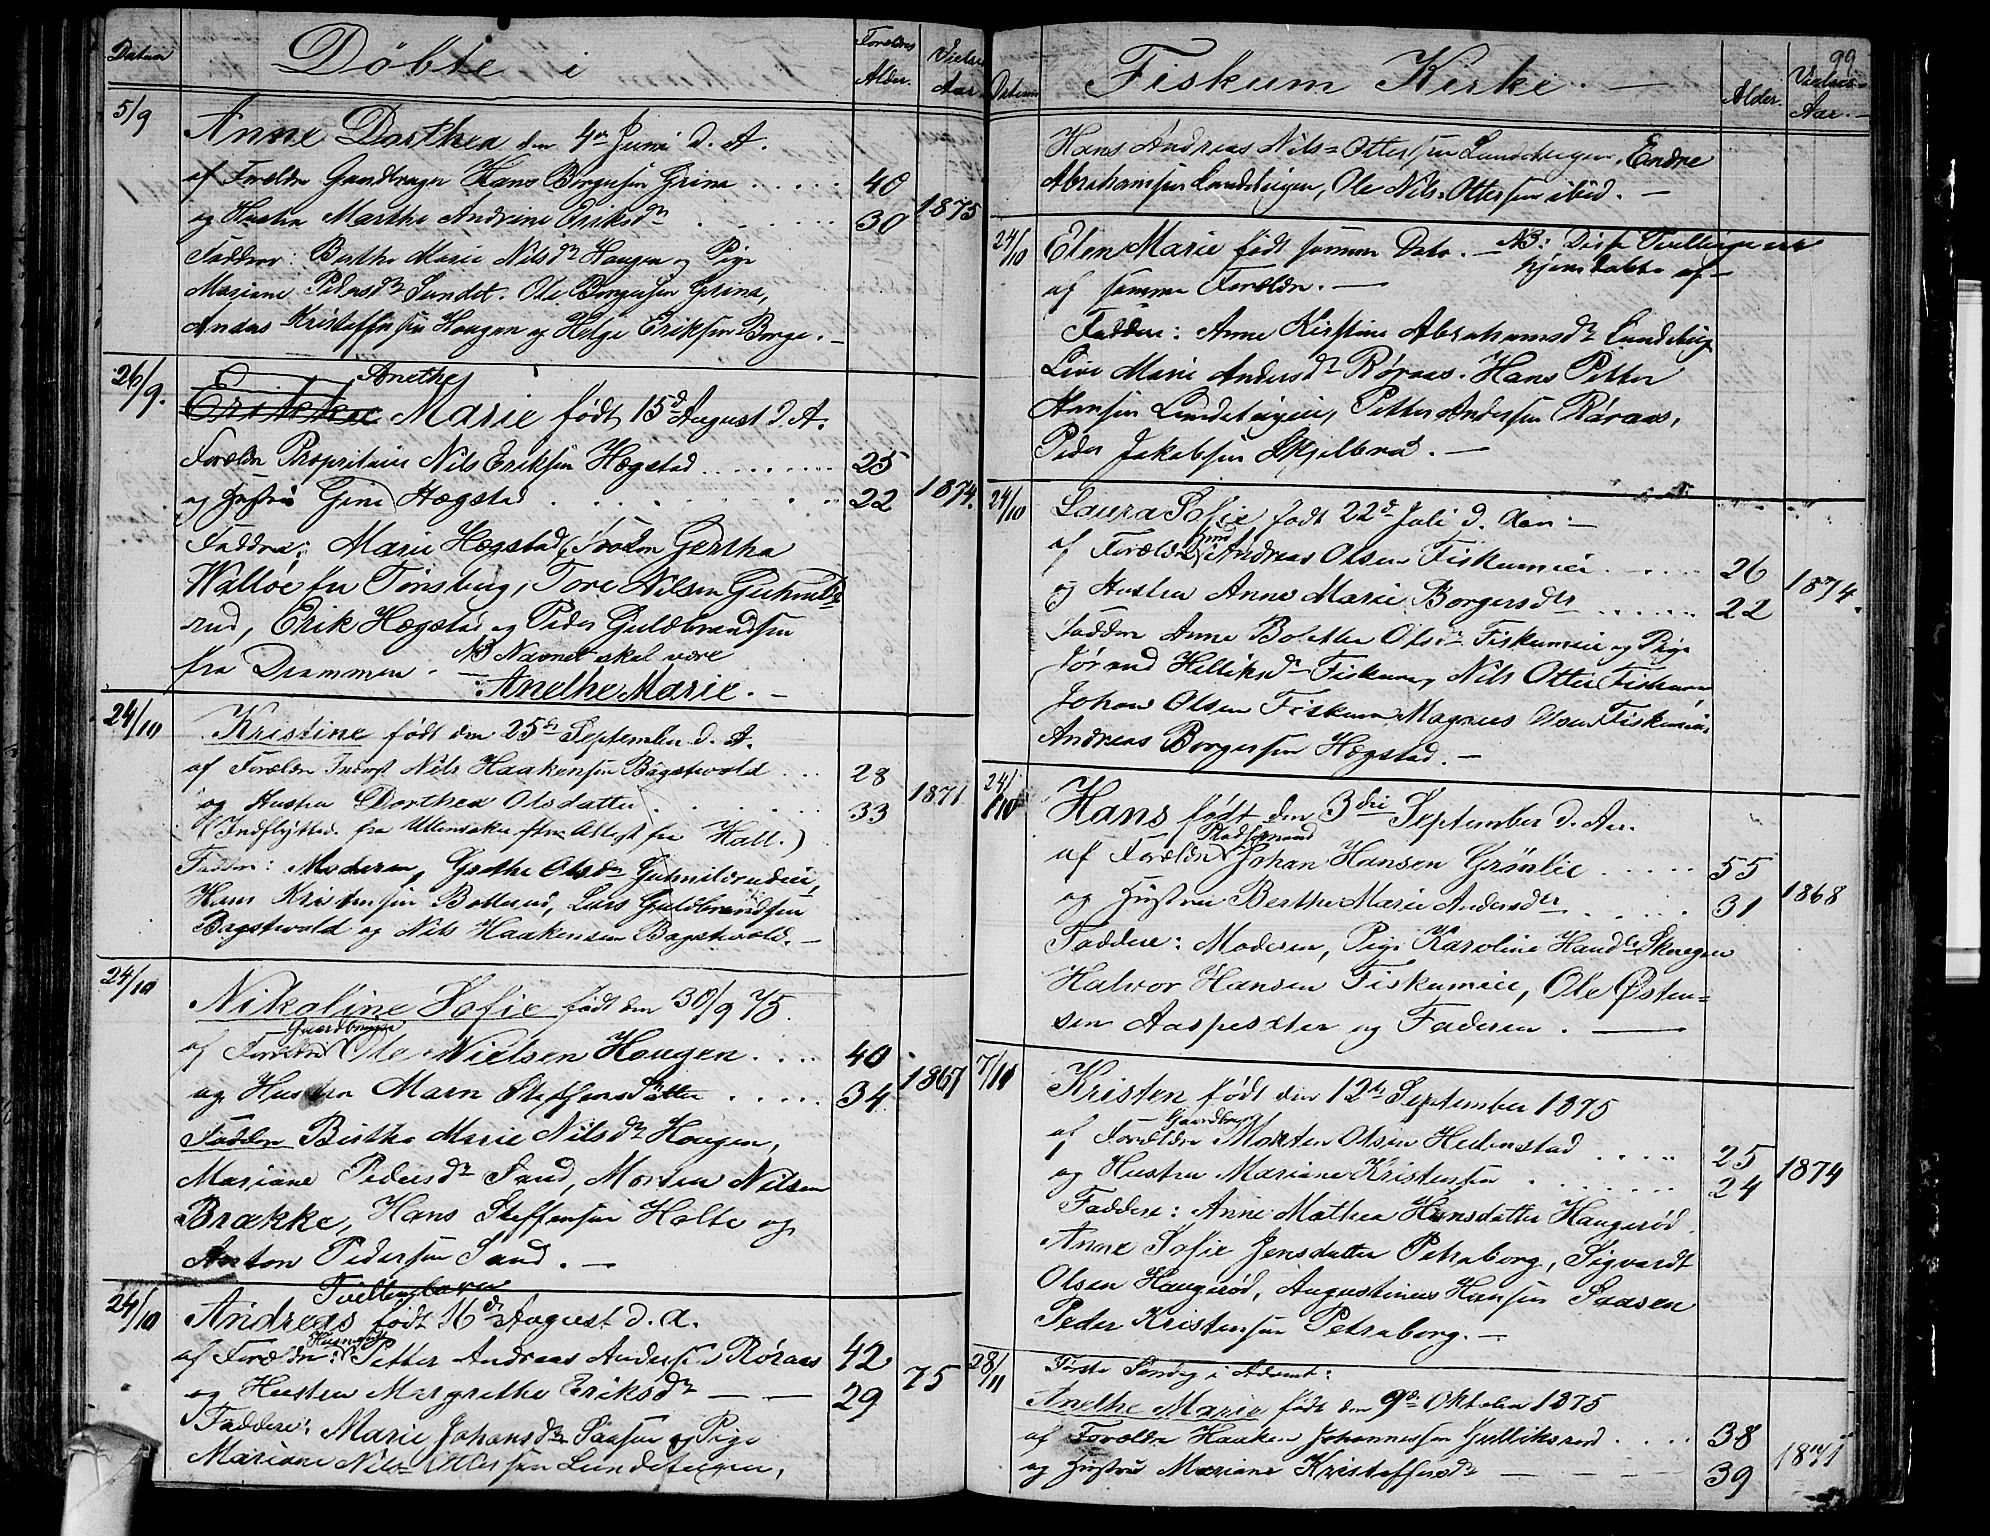 Datum
Döbte i
Forældres Alder.
Vielses Aar
5/9
Anne Dorthea den 4de Juni d. A.
af Forældre Gaardbruger Hans Borgersen Grina ..... 40
og Hustru Marthe Andrine Eriksdr ..... 30 1875
Faddere: Berthe Marie Nilsdr Haugen og Pige
Mariane Pedersdr Sundet. Ole Borgersen Grina,
Anders Kristoffersen Haugen og Helge Eriksen Borge. —
26/9.
Anethe
Marie født 15d August d. A.
Forældre Proprietair Nils Eriksen Hægstad ....... 25
og Hustru Gina Hægstad ..... 22 1874.
Faddere: Marie Hægstad, Frøken Gertha
Walløe fra Tønsberg, Tore Nilsen Guhnild
rud, Erik Hægstad og Peder Guldbrandsen
fra Drammen. — NB Navnet skal være
Anethe Marie. —
24/10
Kristine født den 25de September d. A.
af Forældre Inderst Nils Haakensen Bagstevold ... 28
og Hustru Dorthea Olsdatter ..... 33 1871
(Indflyttede fra Ullensaker efter Attest fra Hall.)
Faddere: Moderen, Grethe Olsdr Guhnildrudeie,
Hans Kristensen Bollerud, Lars Guldbrandsen
Bagstevold og Nils Haakensen Bagstevold. —
24/10
Nikoline Sofie født den 30/9 75.
Gaardbruger
af Forældre Ole Nielsen Haugen .... 40
og Hustru Maren Steffensdatter ..... 34 1867
Faddere Berthe Marie Nilsdr Haugen,
Mariane Pedersdr Sand, Morten Nilsen
Brakke, Hans Steffensen Holte og
Anton Pedersen Sand. —
24/10
Tvillingbarn
Andreas født 16de August d. A.
Husmand
af Forældre: Petter Andreas Andersen Røraas 42
og Hustru Margrethe Eriksdr — — 29 75
Faddere: Marie Johansdr Saasen og Pige
Mariane Nils-Ottersen Lundeteigen,
99
Datum
Fiskum Kirke. —
Alder.
Vielses-Aar. —
Hans Andreas Nils-Ottersen Lundeteigen, Endre
Abrahamsen Lundeteigen, Ole Nils-Ottersen ibid. —
24/10
Elen Marie født samme Dato. — NB: Disse Tvillinger ere
hjemdøbte af —
af samme Forældre. —
Faddere: Anne Kirstine Abrahamsdr Lundeteig
Live Marie Andersdr Røraas. Hans Petter
Hansen Lundeteigen, Petter Andersen Røraas,
Peder Jakobsen Skjelbred. —
24/10
Laura Sofie, født 22d Juli d. Aar: —
af Forældre Andreas Olsen Fiskumeie ..... 26
og Hustru Anne Marie Borgersdr ...... 22 1874.
Faddere Anne Bolette Olsdr Fiskumeie og Pige
Jørand Helliksdr Fiskum, Nils Otter Fiskum
Johan Olsen Fiskum Magnus Olsen Fiskumeie
Andreas Borgersen Hægstad. —
24/10
Hans født den 3die September d. Aar.
Pladsmand
af Forældre Johan Hansen Grønlie ..... 55
og Hustru Berthe Marie Andersdr ..... 31 1868
Faddere: Moderen, Pige Karoline Hansdr Skuegen
Halvor Hansen Fiskumeie, Ole Østen-
sen Aaspesæter og Faderen. —
7/11
Kristen født den 12te September 1875
Gaardbruger
af Forældre Morten Olsen Hedenstad ..... 25
og Hustru Mariane Kristensen ....... 24 1874
Faddere: Anne Mathea Hansdatter Haugerød
Anne Sofie Jensdatter Petraborg, Sigvardt
Olsen Haugerød, Augustinus Hansen Saasen
Peder Kristensen Petraborg. —
28/11
Første Søndag i Advent:
Anethe Marie født den 9de Oktober 1875
af Forældre Haaken Johannessen Gulliksrud .... 38
og Hustru Mariane Kristoffersdr — — — 39 1871